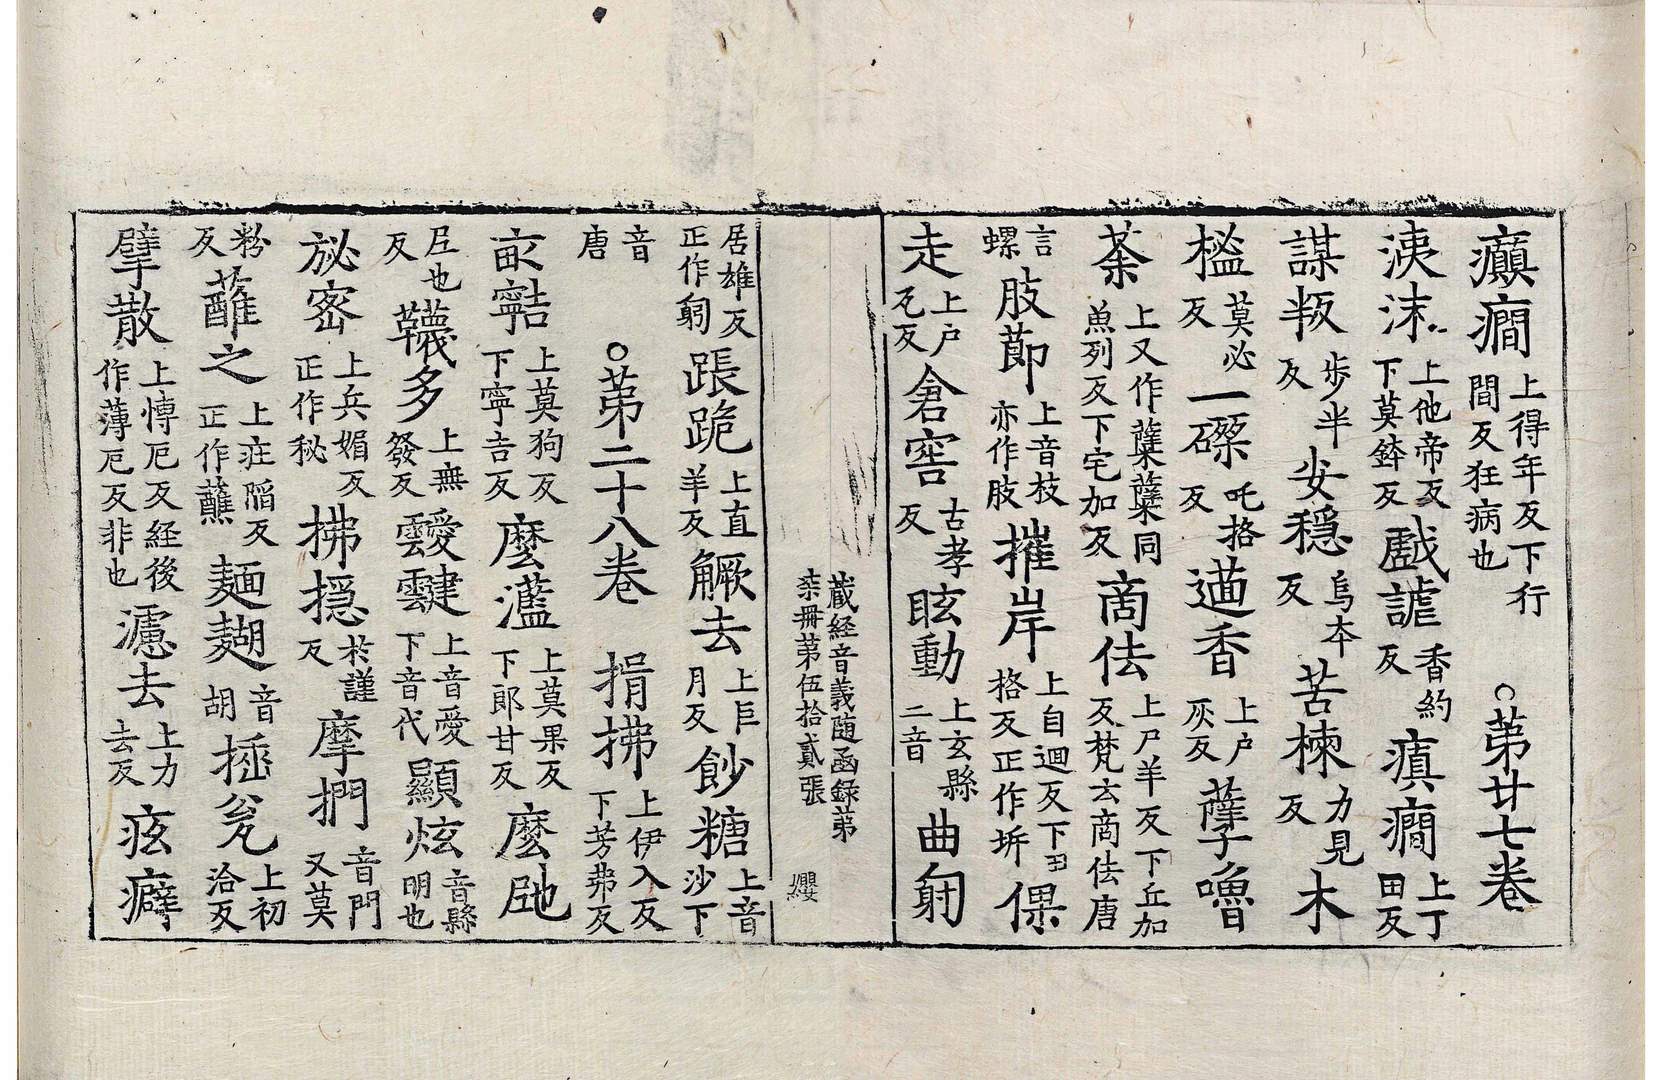 癲癎上得年反下行間反狂病也 ○苐廿七卷
洟沫上他帝反下莫鉢反戱謔香約反瘨癎上丁田反
謀叛步半反安穩烏夲反苦楝力見反木
榓莫必反一磔吒格反逥香上户灰反孽嚕
荼上又作蘖蘖同魚列反下宅加反商佉上尸羊反下丘加反梵云商佉唐
言螺肢莭上音枝亦作肢摧岸上自迴反下五格反正作㟁倮
走上户瓦反倉窖古孝反眩動上玄縣二音曲躬
藏經音義随函録苐
柒冊苐伍拾貳張 纓
居雄反正作躬踞跪上直羊反觖去上巨月反䬰糖上音沙下
音唐 ○苐二十八卷 捐拂上伊入反下芳弗反
𠭇寧吉上莫狗反下寧吉反麽灆上莫果反下郎甘反麽𡰠
𡰠也反韈多上無發反靉靆上音愛下音代顯炫音縣明也
祕宻上兵媚反正作秘拂㨷扵謹反摩捫音門又莫
粉反蘸之上疘䧟反正作蘸麺麹音胡插瓮上初洽反
擘散上愽厄反経後作薄厄反非也濾去上力去反痃癖